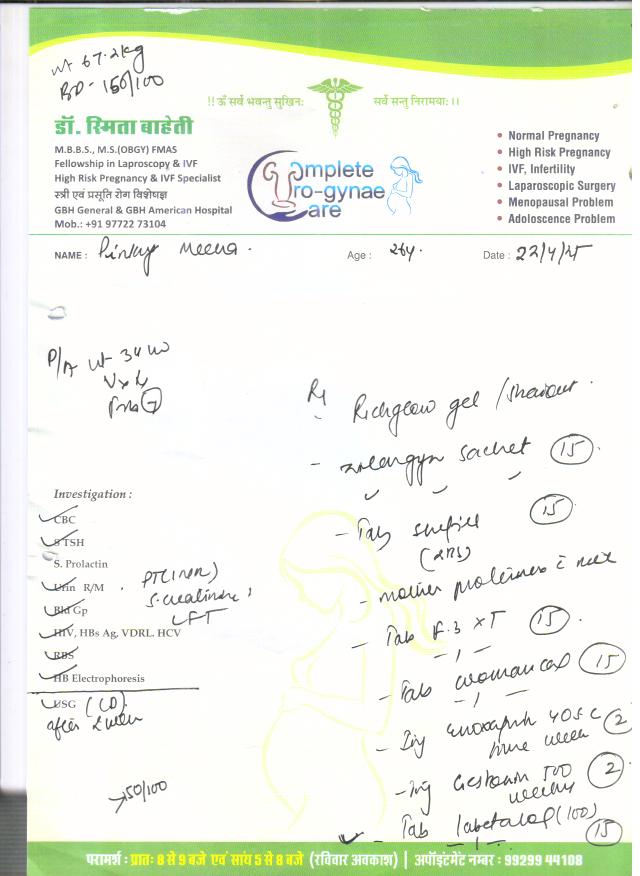 wt 67.2kg
BP- 150/100
!! ॐ सर्वे भवन्तु सुखिनः सर्वे सन्तु निरामयाः।।
डॉ. स्मिता बाहेती
M.B.B.S., M.S.(OBGY) FMAS
Fellowship in Laproscopy & IVF
High Risk Pregnancy & IVF Specialist
स्त्री एवं प्रसूति रोग विशेषज्ञ
GBH General & GBH American Hospital
Mob.: +91 97722 73104
Complete
Uro-gynae
Care
• Normal Pregnancy
• High Risk Pregnancy
• IVF, Infertility
• Laparoscopic Surgery
• Menopausal Problem
• Adoloscence Problem
NAME : Pinky Meena. Age : 26y. Date : 22/4/25
P/A ut 34 w
Vx
Rx Richglow gel /
- sachet (15)
- Tab (15)
- mother
- Tab F-3 XT (15)
- Tab womancal (15)
- Inj 40 SC (2)
- Inj 500 (2)
weekly
- Tab labetalol (100) (15)
Investigation :
CBC
S TSH
S. Prolactin
Urin R/M
PT(INR)
S. creatinine,
LFT
Bld Gp
HIV, HBs Ag, VDRL. HCV
RBS
HB Electrophoresis
USG (CD)
after 2 week
150/100
परामर्श : प्रातः 8 से 9 बजे एवं सांय 5 से 8 बजे (रविवार अवकाश) | अपॉइंटमेंट नम्बर : 99299 44108